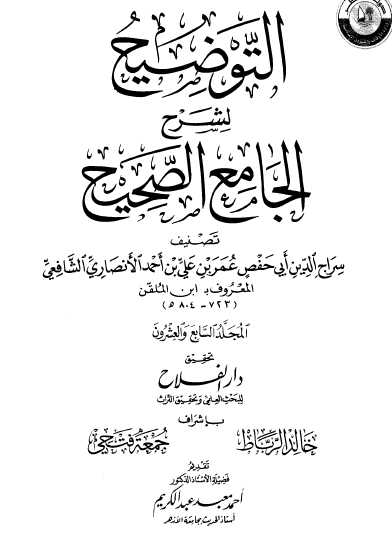 التَّوضِيحُ
لِشَرْحِ
الجَامِعِ الصَّحِيحِ
تَصْنِيف
سِرَاجُ الدِّينِ أَبِي حَفْصٍ عُمَرَ بْنِ عَلِيِّ بْنِ أَحْمَدَ الأَنْصَارِيِّ الشَّافِعِيِّ
المَعْرُوف بـ ابن المُلَقّن
(٧٢٣-٨٠٤ هـ)
المُجَلَّدُ السَّابِعُ وَالعِشْرُونَ
تحقيق
دار الفلاح
للبحث العلمي وتحقيق التراث
بإشراف
خالد الرباط جمعة فتحي
تقديم
فضيلة الأستاذ الدكتور
أحمد معبد عبد الكريم
أستاذ الحديث بجامعة الأزهر